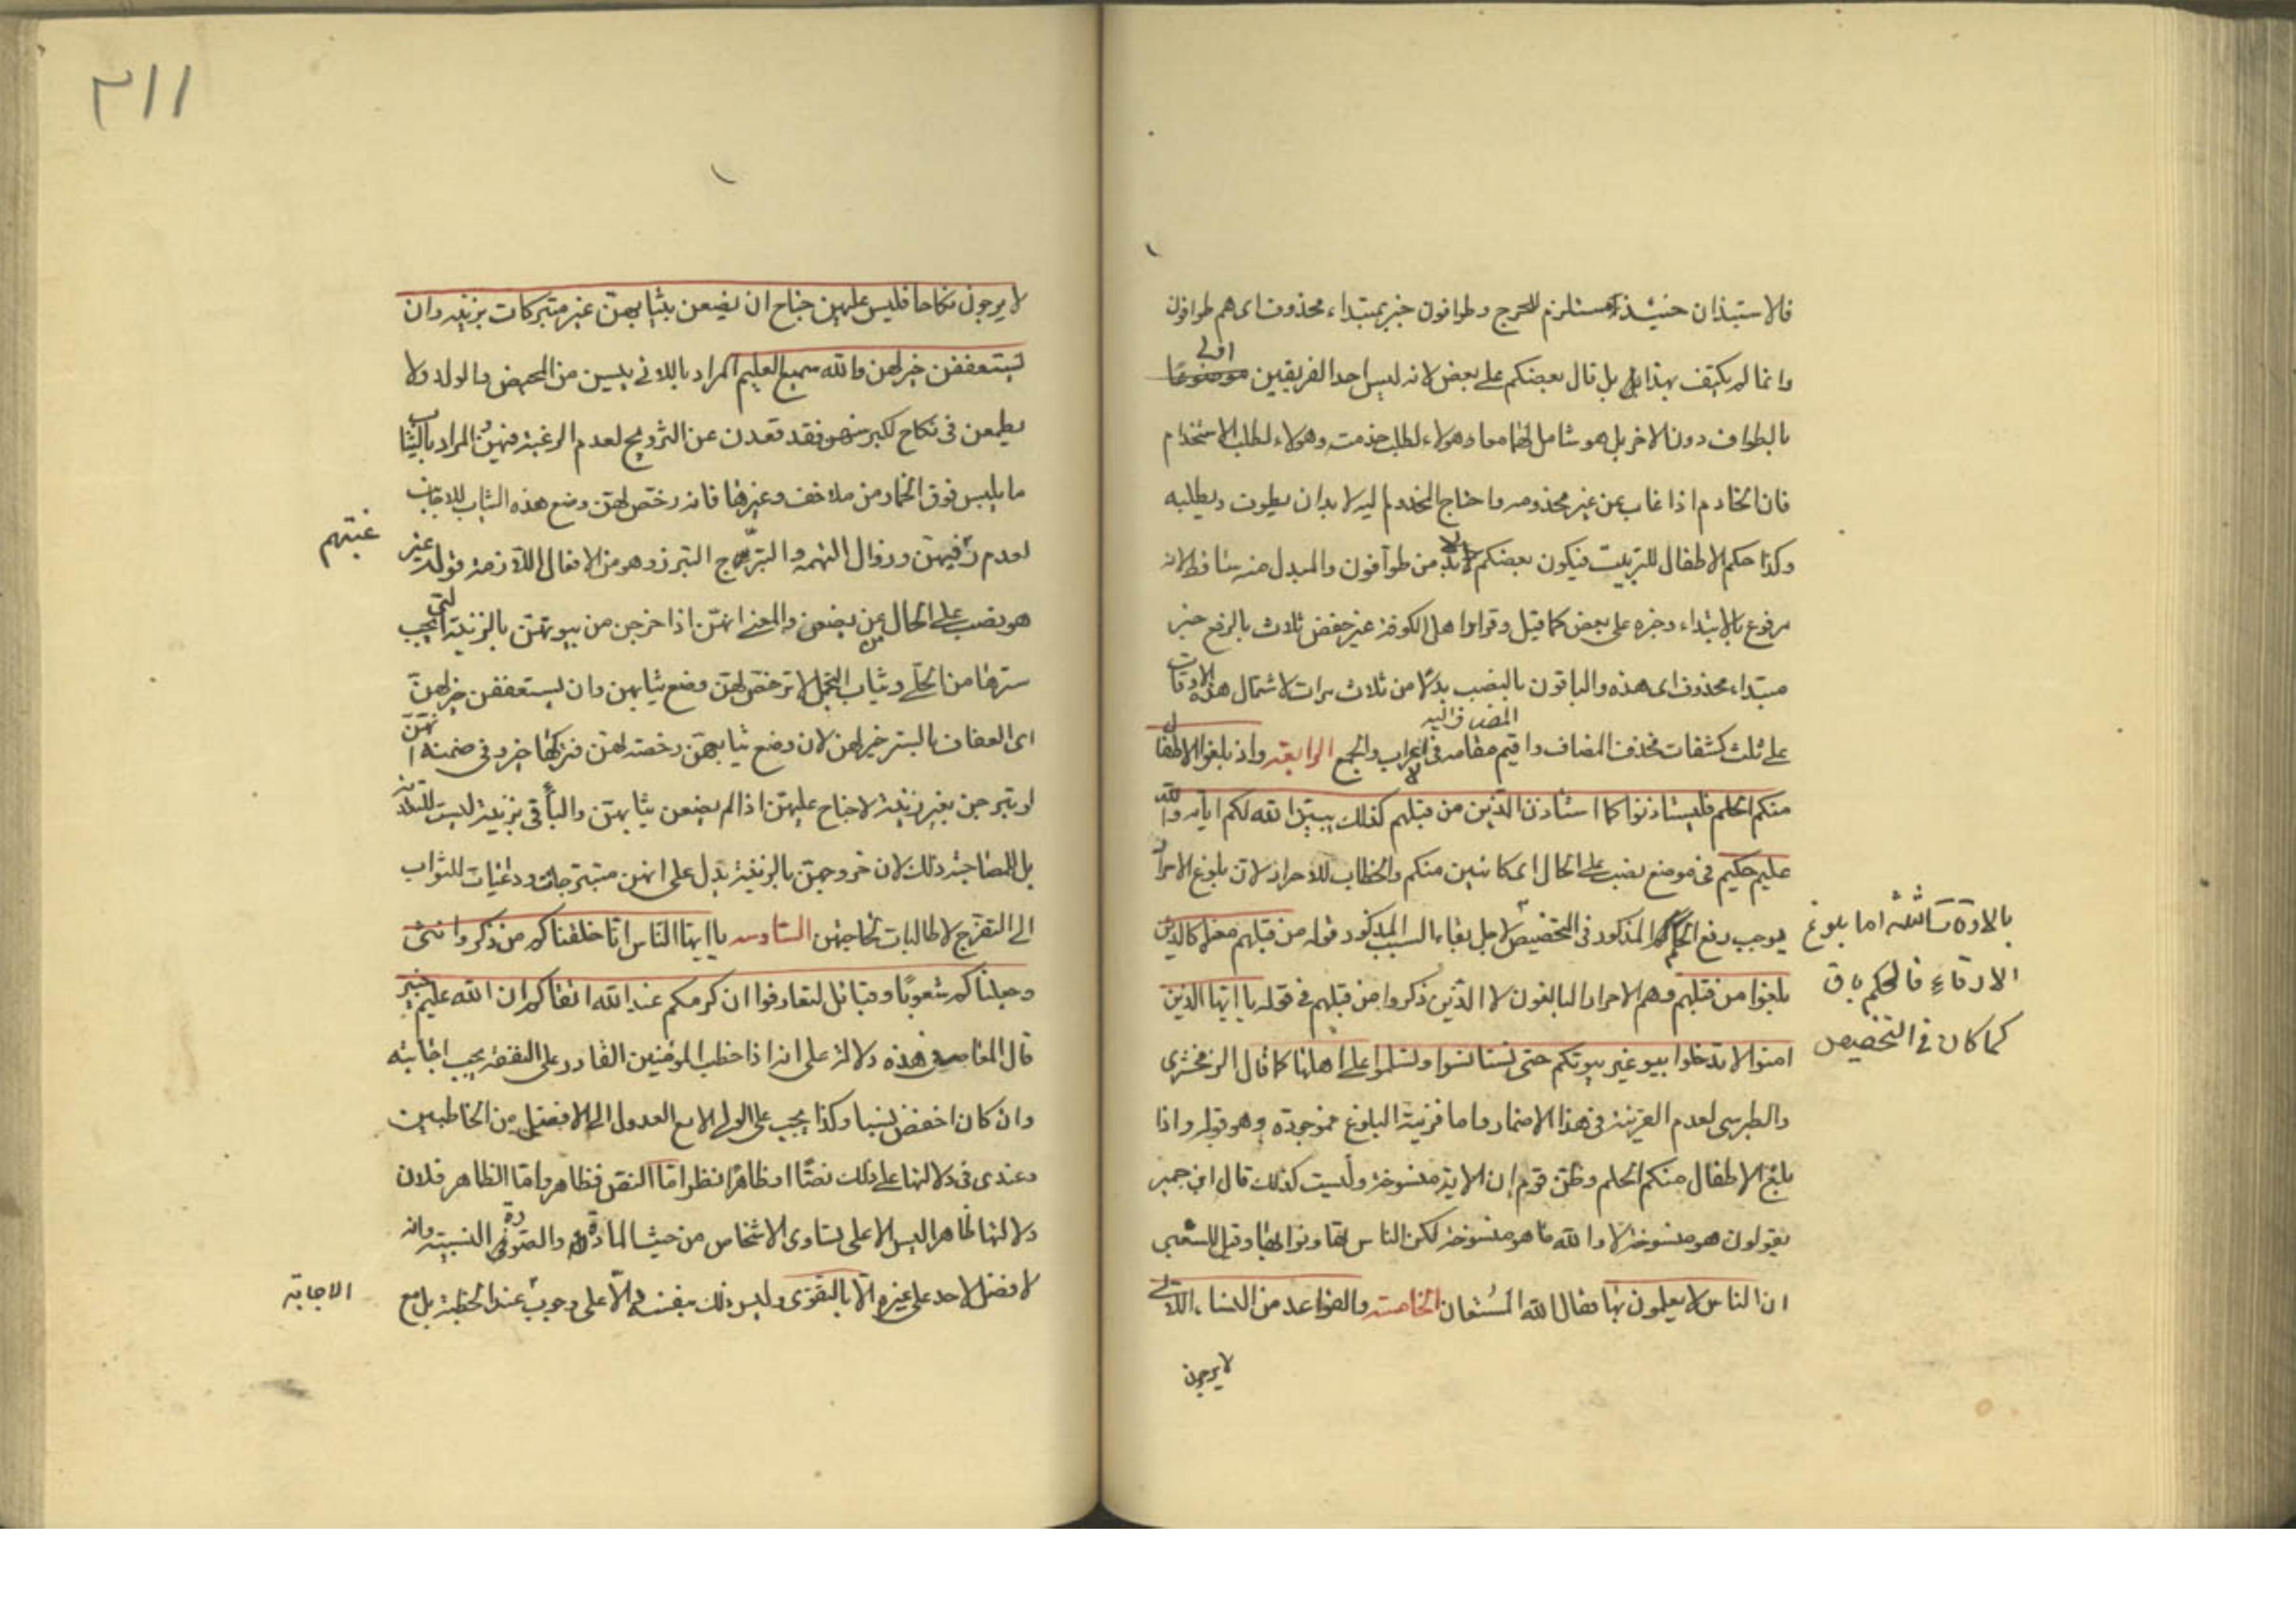 فالاستيذان حينئذ مستلزم للحرج وطوافون خبر مبتداء محذوف اى هم طوافون
وانما لم يكتف بهذا بل قال بعضكم على بعض لانه ليس احد الفريقين اولى
بالطواف دون الاخر بل هو شامل لهما معا وهولاء لطلب خدمت وهولاء لطلب الاستخدام
فان الخادم اذا غاب عن غير مخدومه واحتاج المخدوم اليه لا بد ان يطوف ويطلبه
وكذا حكم الاطفال للتربيت فيكون بعضكم بدلا من طوافون والمبدل منه ساقط لانه
مرفوع بالابتداء وخبره على بعض كما قيل وقراوا هل الكوفة غير حفص ثلاث بالرفع خبر
مبتداء محذوف اى هذه والباقون بالنصب بدلا من ثلاث مرات لاشتمال هذه الاوقات
على ثلث كشفات فحذف المضاف واقيم المضاف اليه مقامه فى الاعراب والجمع الرابعة واذ بلغوا الاطفال
منكم الحلم فليستاذنوا كما استاذن الذين من قبلهم كذلك يبين الله لكم اياته والله
عليم حكيم فى موضع نصب على الحال اى كائنين منكم والخطاب للاحرار لان بلوغ الاحرار
يوجب رفع الحكم المذكور فى التخصيص لاجل بقاء السبب المذكور قوله من قبلهم معناه كالذين
بلغوا من قبلهم وهم الاحرار البالغون لا الذين ذكروا من قبلهم فى قوله يا ايها الذين
امنوا لا تدخلوا بيو غير بيوتكم حتى تستانسوا وتسلموا على اهلها كما قال الزمخشرى
والطبرسى لعدم القرينة فى هذا الاضمار واما قرينة البلوغ فموجودة وهو قوله واذا
بلغ الاطفال منكم الحلم وظن قوم ان الاية منسوخة وليست كذلك قال ابن جبير
يقولون هو منسوخة لا والله ما هو منسوخة لكن الناس تهاونوا بها وقيل للشعبى
ان الناس لا يعلمون بها فقال الله المستعان الخامسة والقواعد من النساء اللاتى
لا يرجون
بالارادة اما بلوغ
الارقاء فالحكم باق
كما كان فى التخصيص
٢١١
لا يرجون نكاحا فليس عليهن جناح ان يضعن بثيابهن غير متبركات بزينة وان
يستعففن خير لهن والله سميع العليم المراد باللاتى يئسن من المحيض والولد ولا
يطمعن فى نكاح لكبر سنهن فقد قعدن عن التزويج لعدم الرغبة فيهن المراد بالثياب
ما يلبس فوق الخمار من ملاحف وغيرها فانه رخص لهن وضع هذه الثياب للاجانب
لعدم رغبتهم فيهن وزوال التهمه والتبرج التبرز وهو من الافعال اللازمة قوله غير
هو نصب على الحال من يضعن والمعنى انهن اذا خرجن من بيوتهن بالزينة التى يجب
سترها من الحلى وثياب التجمل لا ترخص لهن وضع ثيابهن وان يستعففن خير لهن
اى العفاف بالستر خير لهن لان وضع ثيابهن رخصة لهن فتركها خير وفى ضمنه انهن
لو تبرجن بغير زينة لا جناح عليهن اذا لم يضعن ثيابهن والباء فى بزينة ليست للتعدية
بل للمصاحبة وذلك لان خروجهن بالزينة يدل على انهن متبرجات ودعيات للثواب
الى التفرج لا طالبات لحاجتهن السادسه يا ايها الناس انا خلقناكم من ذكر وانثى
وجعلناكم شعوبا وقبائل لتعارفوا ان كرمكم عند الله اتقاكم ان الله عليم خبير
قال المعاصر فى هذه دلالة على انه اذا خطب المؤمنين القادر على النفقة يجب اجابته
وان كان اخفض نسبا وكذا يجب على الولى الا مع العدول الى الافضل من الخاطبين
وعندى فى دلالتها على ذلك نصا او ظاهرا نظر اما النص فظاهر واما الظاهر فلان
دلالتها ظاهرا ليس الا على تساوى الاشخاص من حيث المادة والصورة النسبية وانه
لا فضل لاحد على غيره الا بالتقوى وليس ذلك بنفسه دالا على وجوب عند الخطبة بل مع
غبتهم
الاجابة